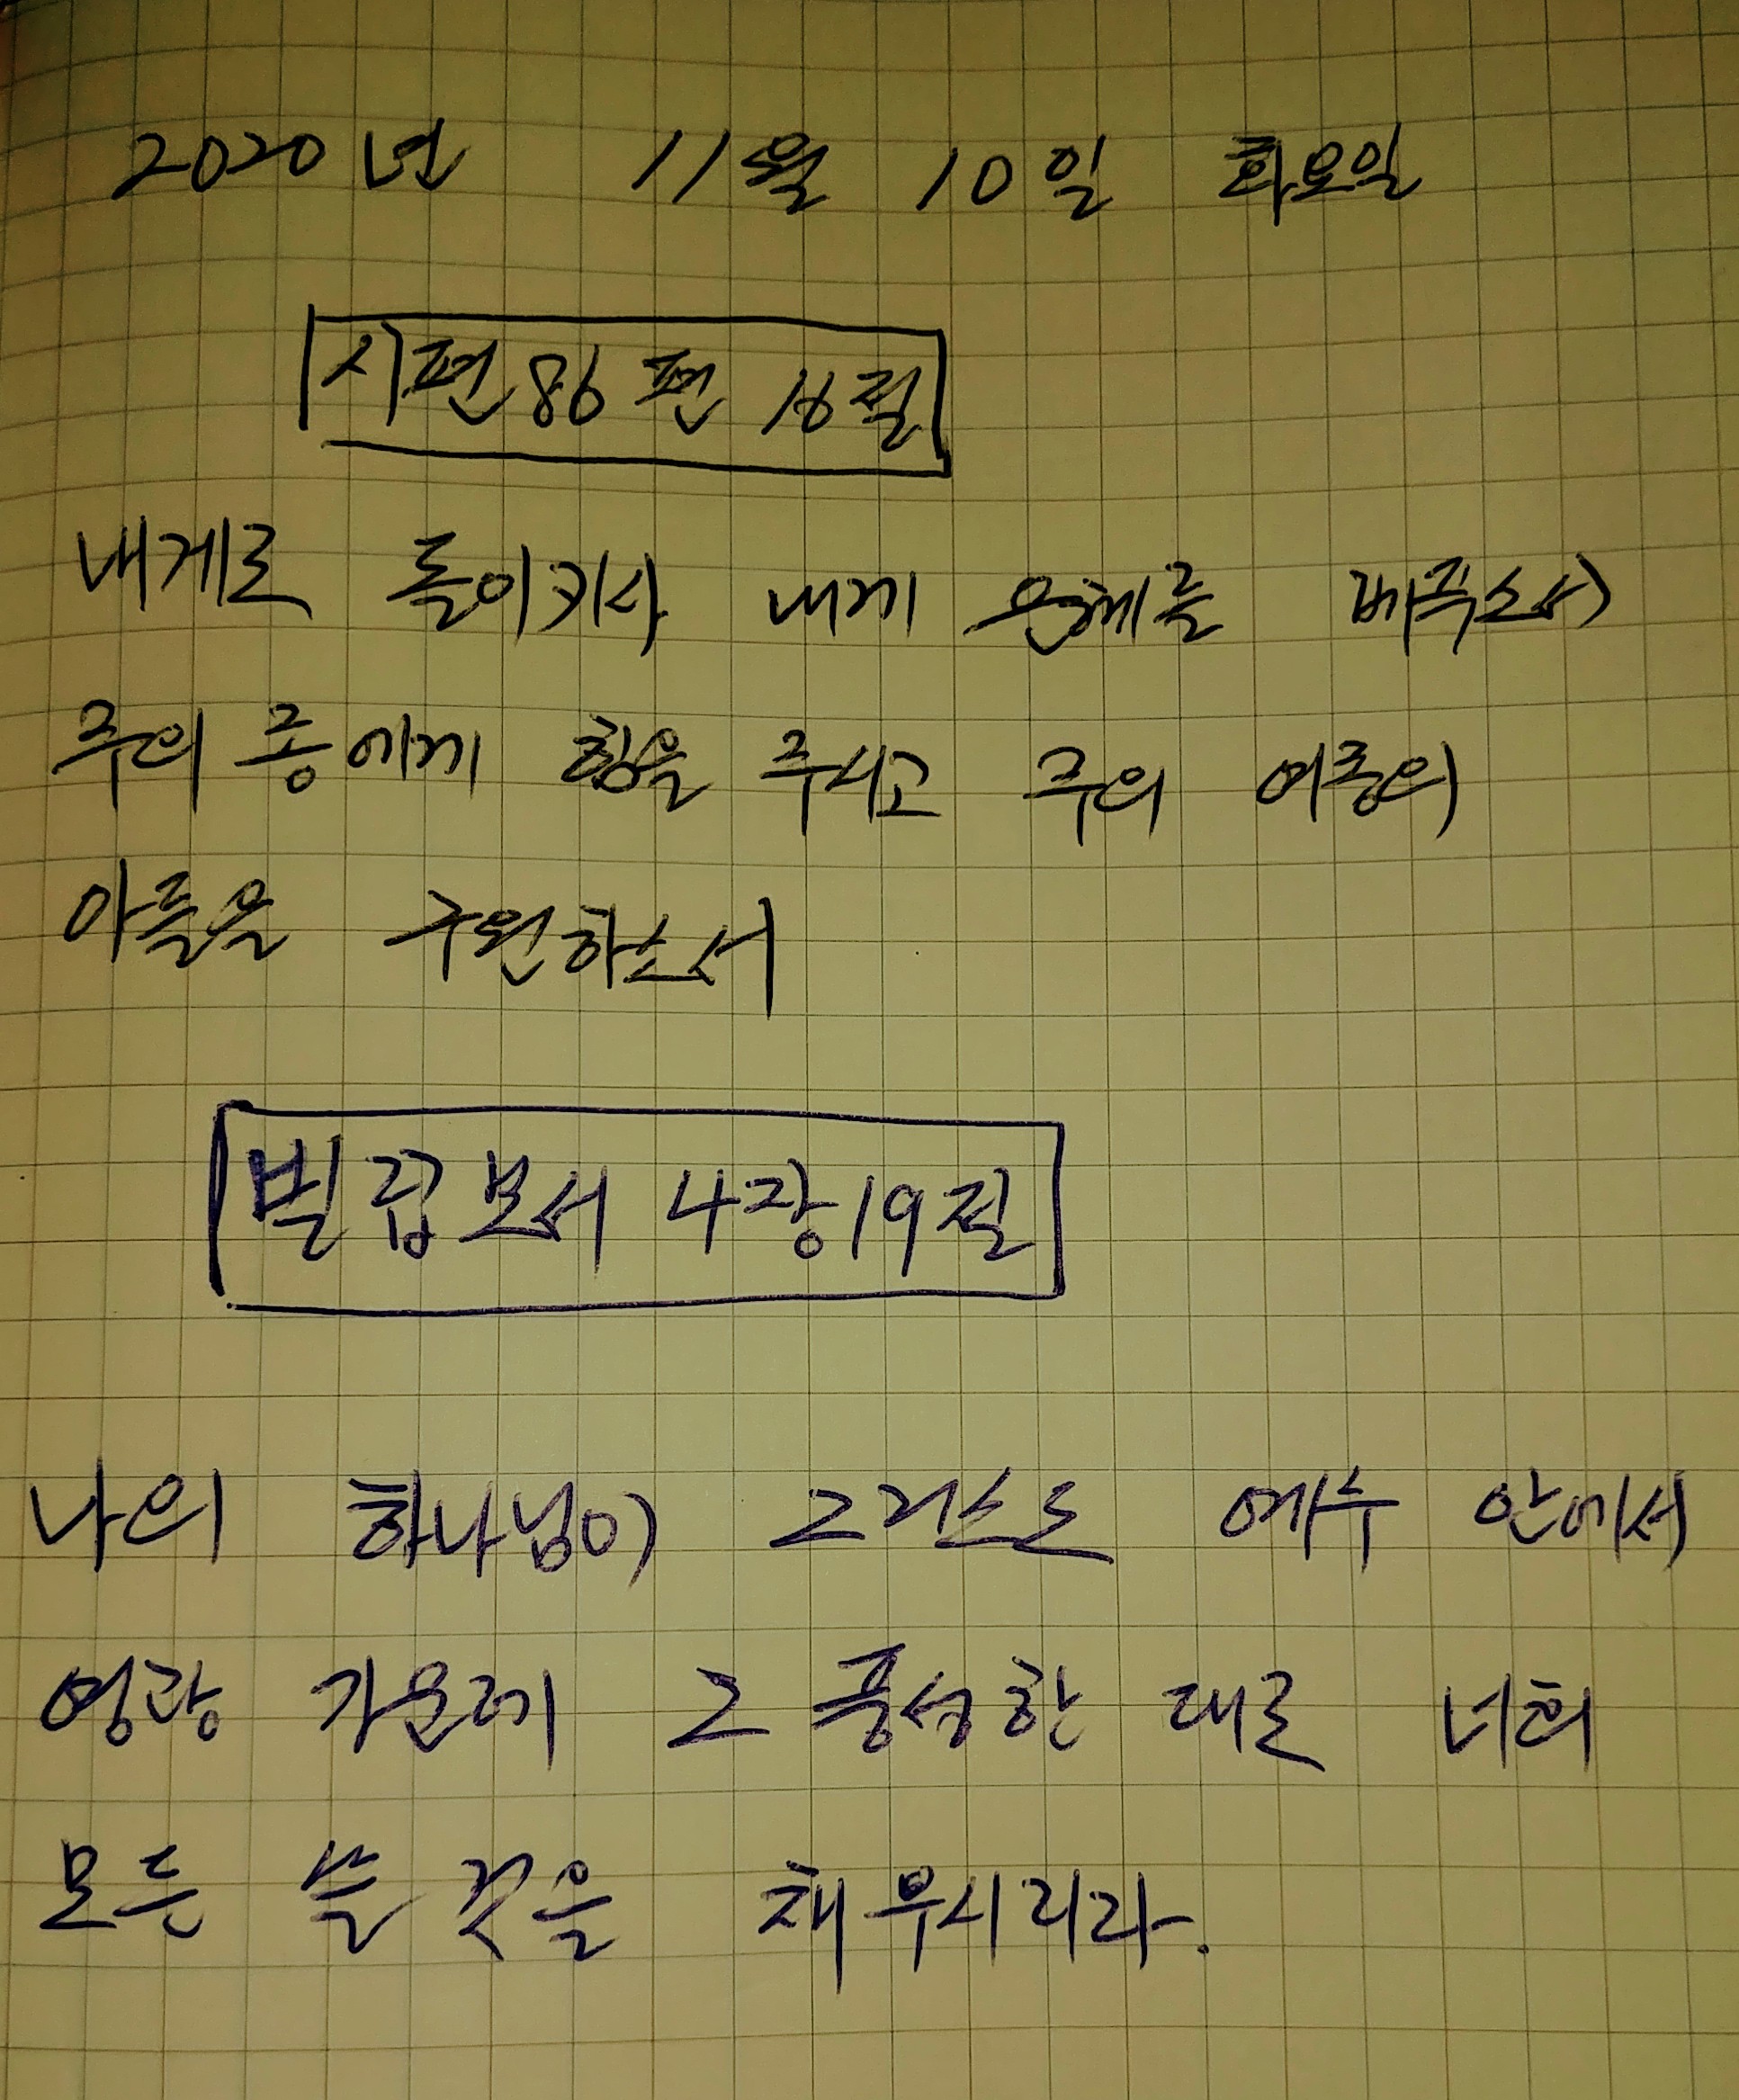 2020년 11월 10일 화요일
시편 86편 16절
내게로 돌이키사 내게 은혜를 베푸소서
주의 종에게 힘을 주시고 주의 여종의
아들을 구원하소서
빌립보서 4장 19절
나의 하나님이 그리스도 예수 안에서
영광 가운데 그 풍성한 대로 너희
모든 쓸 것을 채우시리라.